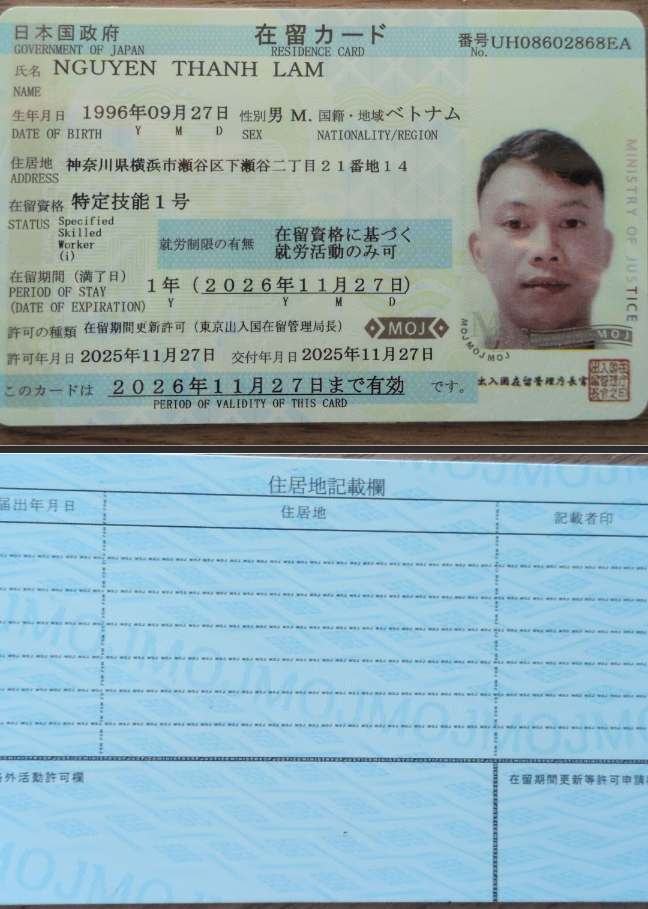 日本国政府 在留カード 番号 UH08602868EA
GOVERNMENT OF JAPAN RESIDENCE CARD No.
氏名 NGUYEN THANH LAM
NAME
生年月日 1996年09月27日 性別 男 M. 国籍・地域 ベトナム
DATE OF BIRTH Y M D SEX NATIONALITY/REGION
住居地 神奈川県横浜市瀬谷区下瀬谷二丁目21番地14
ADDRESS
在留資格 特定技能1号
STATUS Specified
Skilled
Worker
(i)
就労制限の有無 在留資格に基づく
就労活動のみ可
在留期間(満了日) 1年(2026年11月27日)
PERIOD OF STAY Y Y M D
(DATE OF EXPIRATION)
許可の種類 在留期間更新許可(東京出入国在留管理局長)
MOJ
許可年月日 2025年11月27日 交付年月日 2025年11月27日
このカードは 2026年11月27日まで有効 です。
PERIOD OF VALIDITY OF THIS CARD
MINISTRY OF JUSTICE
MOJ MOJ MOJ
MOJ
出入国在留管理庁長官
住居地記載欄
届出年月日 住居地 記載者印
MOJMOJMOJMOJMOJ
外活動許可欄 在留期間更新等許可申請